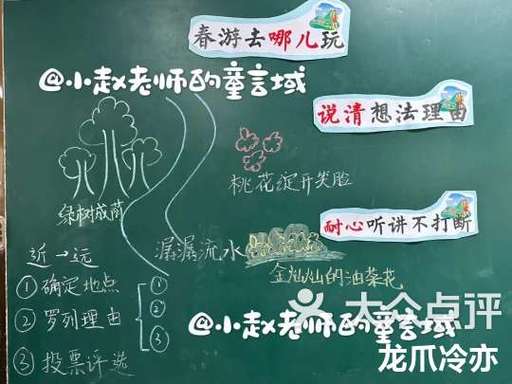 春游去哪儿玩
@小赵老师的童言域
说清想法理由
桃花绽开笑脸
绿树成荫
耐心听讲不打断
潺潺流水
金灿灿的油菜花
近→远
①确定地点
②罗列理由
③投票评选
①
②
③
大众点评
@小赵老师的童言域
龙爪冷亦